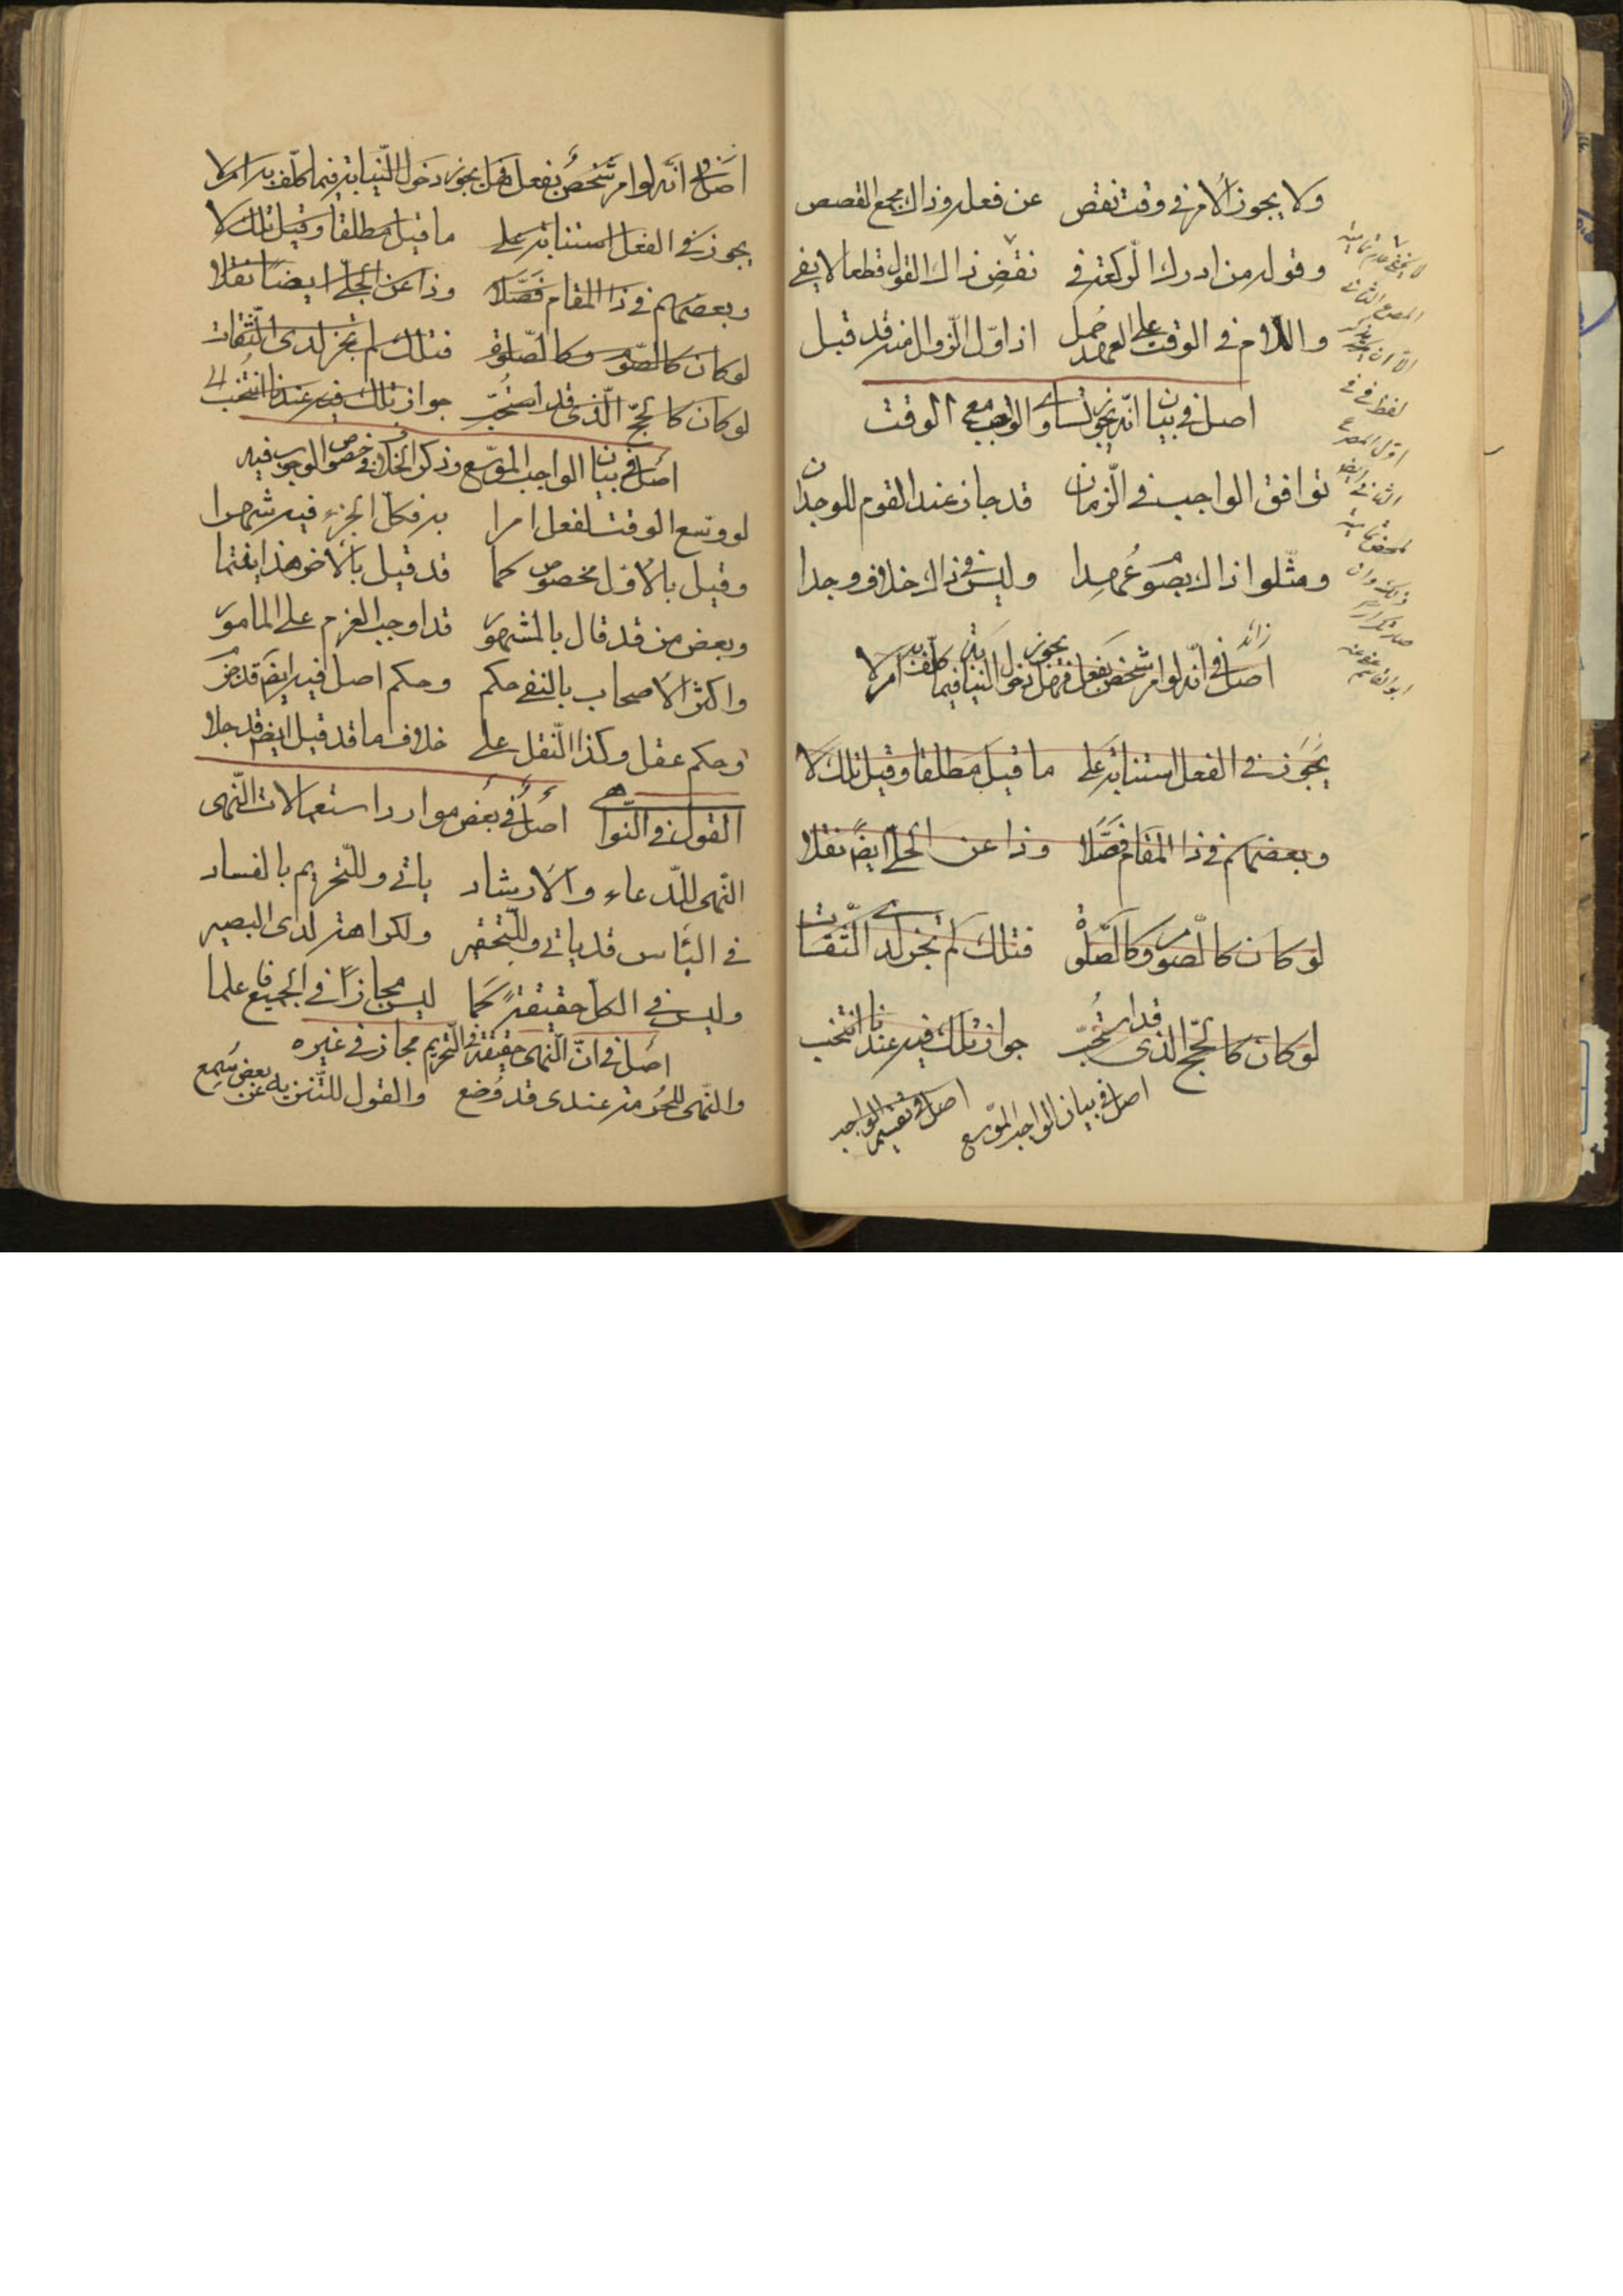 ولا يجوز الأمر في وقت نقص عن فعله وذاك مجمع القصص
وقوله من ادرك الركعة في نقض ذاك القول قطعا لا يفي
واللام في الوقت على العهد حمل اذ اول الزوال منه قد قبل
اصل في بيان انه يجوز تساوى الواجب مع الوقت
توافق الواجب في الزمان قد جاز عند القوم للوجدان
ومثلوا ذاك بصوم عهدا وليس في ذاك خلاف وجدا
زائد
اصل في انه لو امر شخص بفعل فهل يجوز دخول النيابة فيما كلف به ام لا
يجوز في الفعل استنابة على ما قيل مطلقا وقيل تلك لا
وبعضهم في ذا المقام فصلا وذا عن الحلي ايضا نقلا
لو كان كالصوم وكالصلوة فتلك لم تجز لدى الثقات
لو كان كالحج الذى قد استحب جواز تلك فيه عندنا انتخب
اصل في بيان الواجب الموسع اصل في تقسيم الواجب
لا يخفى
المصرع الثاني
الا ان
لفظ في في
اول المصرع
الثاني ايضا
اصل في انه لو امر شخص بفعل فهل يجوز دخول النيابة فيما كلف به ام لا
يجوز في الفعل استنابة على ما قيل مطلقا وقيل تلك لا
وبعضهم في ذا المقام فصلا وذا عن الحلي ايضا نقلا
لو كان كالصوم وكالصلوة فتلك لم تجز لدى الثقات
لو كان كالحج الذى قد استحب جواز تلك فيه عندنا انتخب
اصل في بيان الواجب الموسع وذكر الخلاف في خصوص الوجوب فيه
لو وسع الوقت لفعل امرا به فكل الجزء فيه شهرا
وقيل بالأول مخصوص كما قد قيل بالأخر هذا فقتما
وبعض من قد قال بالمشهور قد اوجب العزم على المأمور
واكثر الأصحاب بالنفي حكم وحكم اصل فيه ايضا قد
وحكم عقل وكذا النقل على خلاف ما قد قيل ايضا قد جلا
القول في النواهي اصل في بعض موارد استعمالات النهى
النهى للدعاء والارشاد ياتي وللتحريم بالفساد
في الياس قد ياتي وللتحقير ولكراهة لدى البصير
وليس في الكل حقيقة كما ليس مجازا في الجميع فاعلما
اصل في ان النهى حقيقة في التحريم مجاز في غيره
والنهى للحرمة عندى قد وضع والقول للتنزيه عن بعض سمع